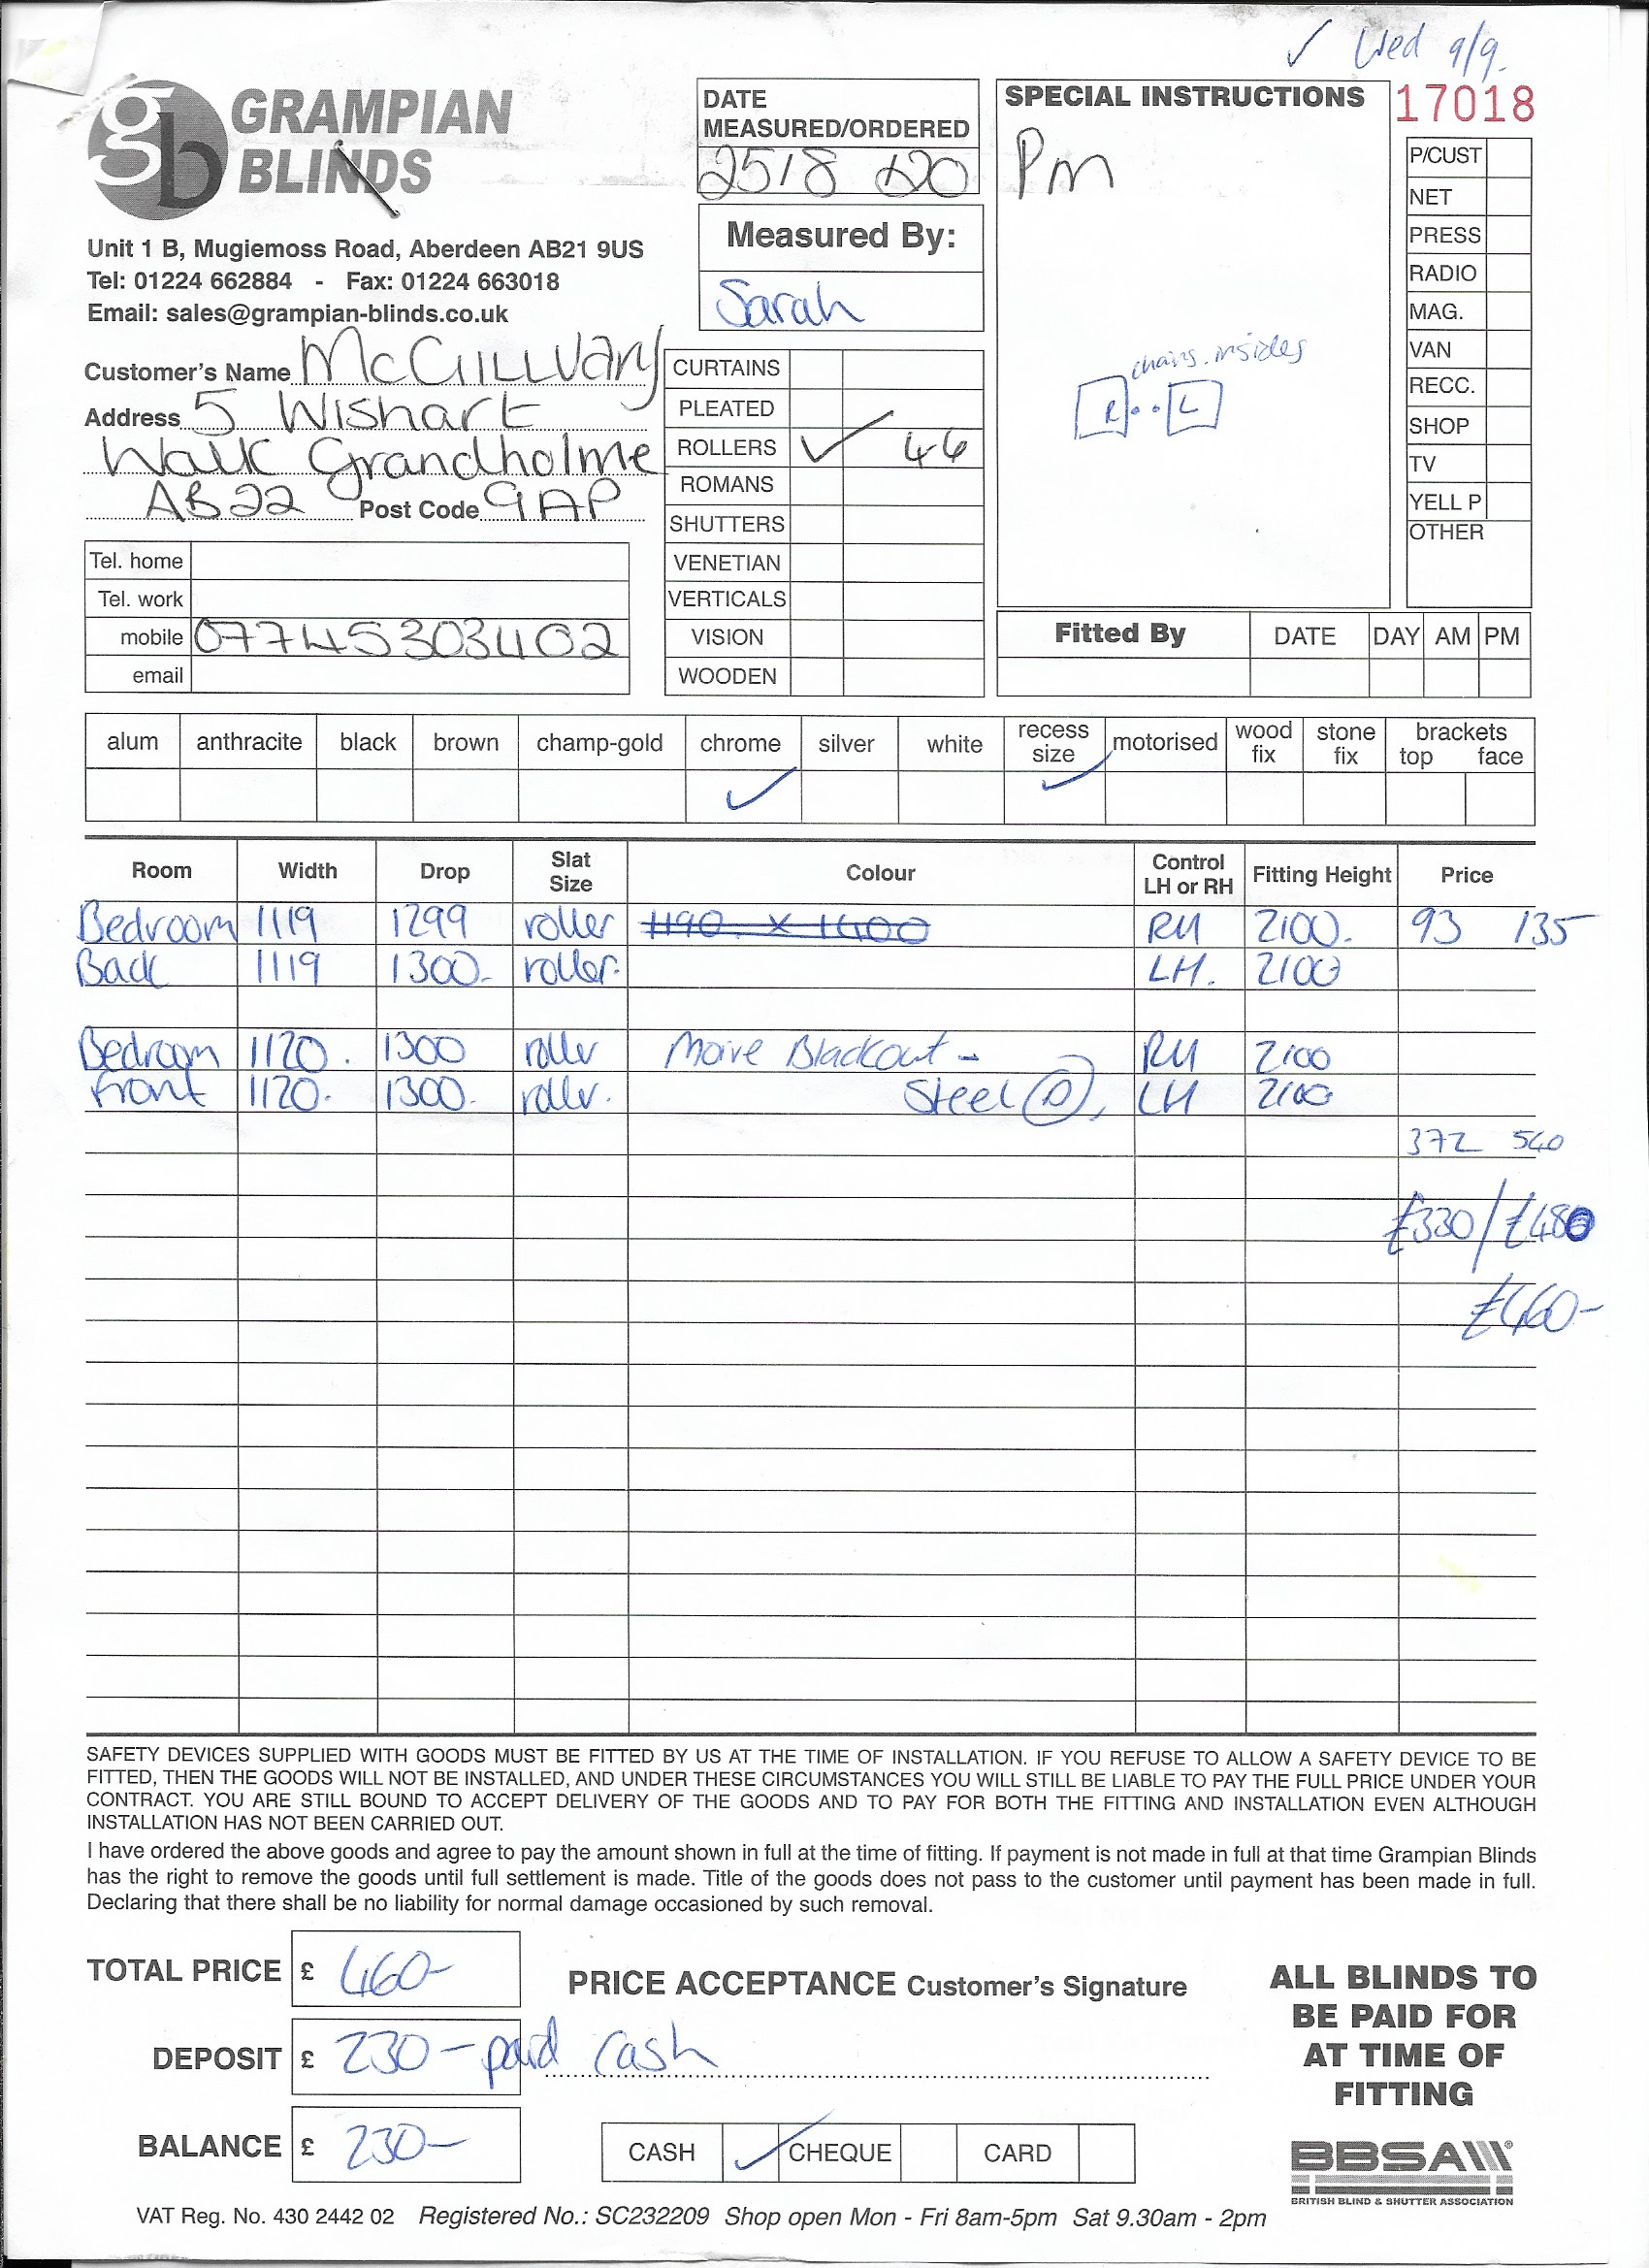 ✓ Wed 9/9.
GRAMPIAN
BLINDS
gb
Unit 1 B, Mugiemoss Road, Aberdeen AB21 9US
Tel: 01224 662884 - Fax: 01224 663018
Email: sales@grampian-blinds.co.uk
Customer's Name McGillvary
Address 5 Wishart
Walk Grandholme
AB22 Post Code 9AP
Tel. home
Tel. work
mobile 07745303402
email
DATE
MEASURED/ORDERED
25/8
Measured By:
Sarah
CURTAINS
PLEATED
ROLLERS ✓ 46
ROMANS
SHUTTERS
VENETIAN
VERTICALS
VISION
WOODEN
SPECIAL INSTRUCTIONS
Pm
chains. insides
R . . L
17018
P/CUST
NET
PRESS
RADIO
MAG.
VAN
RECC.
SHOP
TV
YELL P
OTHER
Fitted By DATE DAY AM PM
alum anthracite black brown champ-gold chrome silver white recess size motorised wood fix stone fix brackets top face
✓ ✓
Room Width Drop Slat Size Colour Control LH or RH Fitting Height Price
Bedroom 1119 1299 roller 1190 x 1400 RH 2100. 93 135
Back 1119 1300- roller. LH. 2100
Bedroom 1120. 1300 roller Moire Blackout - RH 2100
Front 1120. 1300. roller. Steel (D), LH 2100
372 540
£330/£480
£460-
SAFETY DEVICES SUPPLIED WITH GOODS MUST BE FITTED BY US AT THE TIME OF INSTALLATION. IF YOU REFUSE TO ALLOW A SAFETY DEVICE TO BE
FITTED, THEN THE GOODS WILL NOT BE INSTALLED, AND UNDER THESE CIRCUMSTANCES YOU WILL STILL BE LIABLE TO PAY THE FULL PRICE UNDER YOUR
CONTRACT. YOU ARE STILL BOUND TO ACCEPT DELIVERY OF THE GOODS AND TO PAY FOR BOTH THE FITTING AND INSTALLATION EVEN ALTHOUGH
INSTALLATION HAS NOT BEEN CARRIED OUT.
I have ordered the above goods and agree to pay the amount shown in full at the time of fitting. If payment is not made in full at that time Grampian Blinds
has the right to remove the goods until full settlement is made. Title of the goods does not pass to the customer until payment has been made in full.
Declaring that there shall be no liability for normal damage occasioned by such removal.
TOTAL PRICE £ 460-
PRICE ACCEPTANCE Customer's Signature
DEPOSIT £ 230 - paid cash
BALANCE £ 230-
CASH ✓ CHEQUE CARD
ALL BLINDS TO
BE PAID FOR
AT TIME OF
FITTING
BBSA
BRITISH BLIND & SHUTTER ASSOCIATION
VAT Reg. No. 430 2442 02 Registered No.: SC232209 Shop open Mon - Fri 8am-5pm Sat 9.30am - 2pm